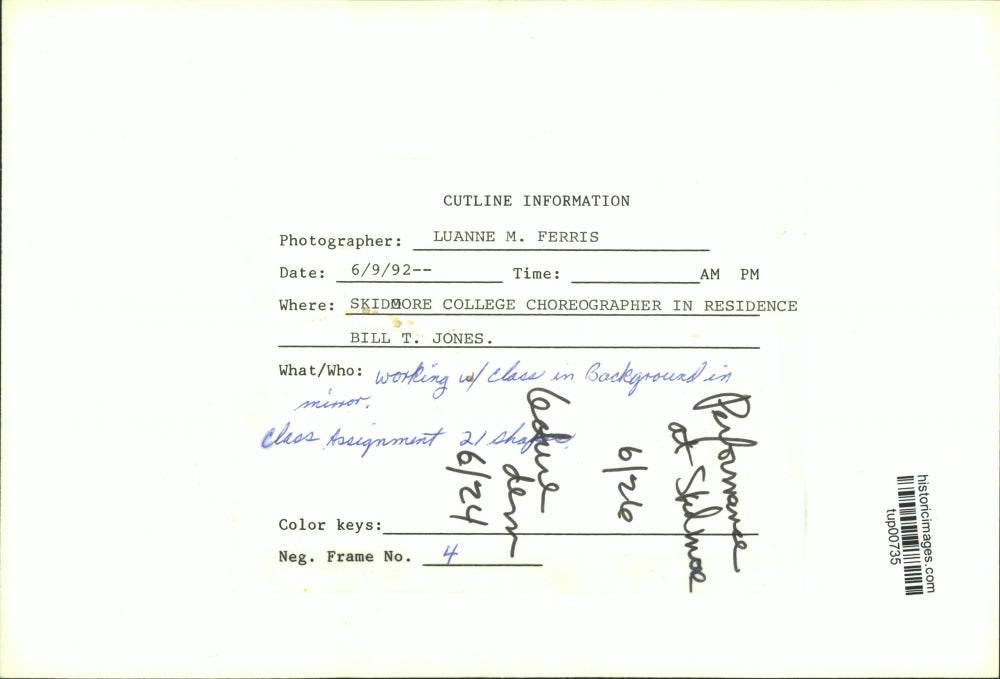 CUTLINE INFORMATION
Photographer: LUANNE M. FERRIS
Date: 6/9/92-- Time: AM PM
Where: SKIDMORE COLLEGE CHOREOGRAPHER IN RESIDENCE
BILL T. JONES.
What/Who: working w/ class in Background in
mirror.
Class Assignment 21 shapes.
Color keys:
Neg. Frame No. 4
Performance
at Skidmore
6/26
Lecture
dem
6/24
historicimages.com
tup00735